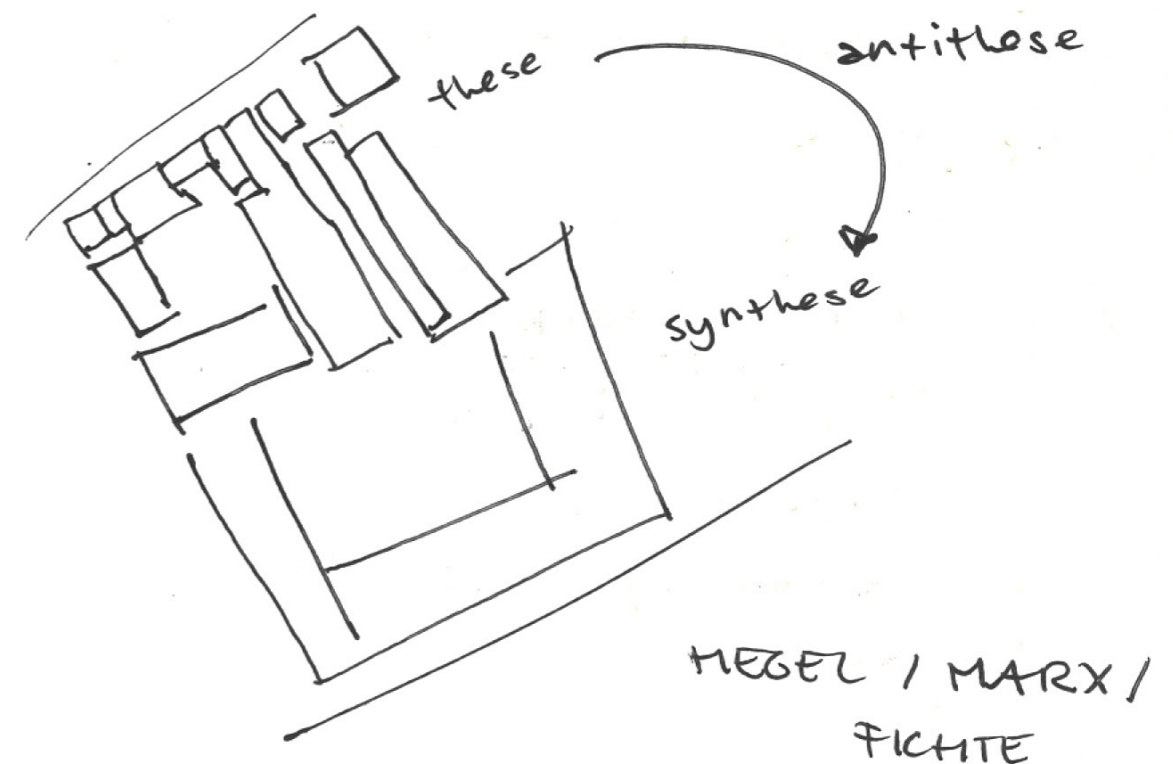 these
antithese
synthese
HEGEL / MARX /
FICHTE